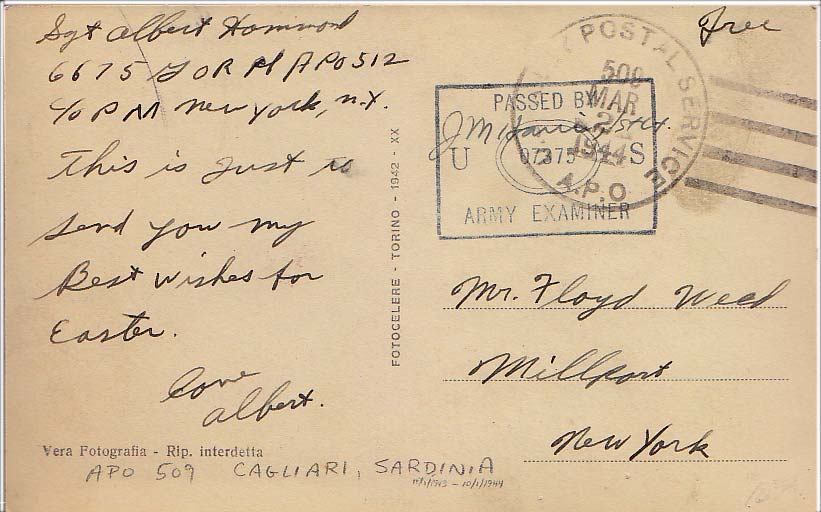 Sgt Albert Hammond
6675 APO 512
c/o PM New York, N.Y.
This is Just to
send you my
Best wishes for
Easter.
Love
Albert.
Vera Fotografia - Rip. interdetta
APO 509 CAGLIARI, SARDINIA
11/1/1943 - 10/1/1944
FOTOCELERE - TORINO - 1942 - XX
Free
POSTAL SERVICE
509
MAR
1944
A.P.O
PASSED BY
U 07375 S
ARMY EXAMINER
Mr. Floyd Weed
Millport
New York